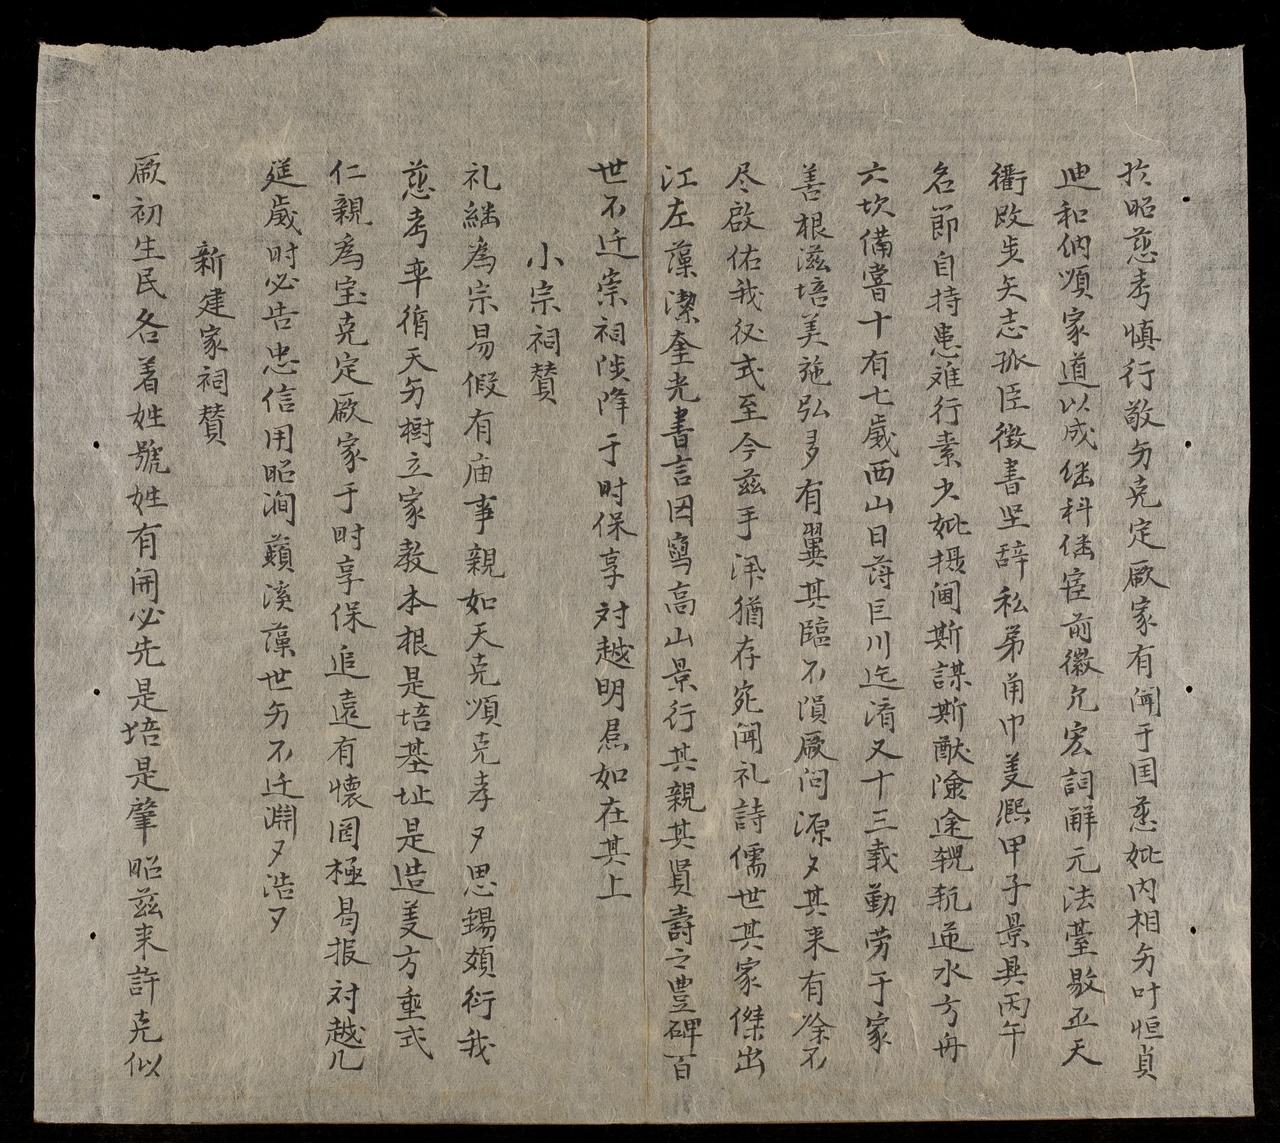 於昭慈考慎行敬旃克定厥家有聞于国慈妣內相旃叶恒貞
迪和納順家道以成継科継宦前徽允宏詞觧元法臺敭丕天
衢跂步矢志孤臣徵書坚辞私第甬巾羙熈甲子景具丙午
名節自持患难行素少妣摄阃斯謀斯猷險途𫐐𨋢逆水方舟
六坎備嘗十有七歲西山日蒔巨川迄淯又十三载勤劳于家
善根滋培美施弘多有翼其臨不隕厥问源〻其来有馀不
尽啟佑我後式至今兹手澤猶存宛闻礼詩儒世其家傑出
江左藻潔奎光書言因寫高山景行其親其賢壽之豊碑百
世不迁崇祠陟降于时保享对越明禋如在其上
小宗祠贊
礼継為宗易假有庙事親如天克順克孝〻思錫類衍我
慈考率循天旃樹立家教本根是培基址是造羙方垂式
仁親為宝克定厥家于时享保追遠有懷罔極曷报对越几
筵歲时必告忠信用昭涧蘋溪藻世旃不迁淵〻浩〻
新建家祠贊
厥初生民各着姓號姓有開必先是培是肇昭兹来許克似